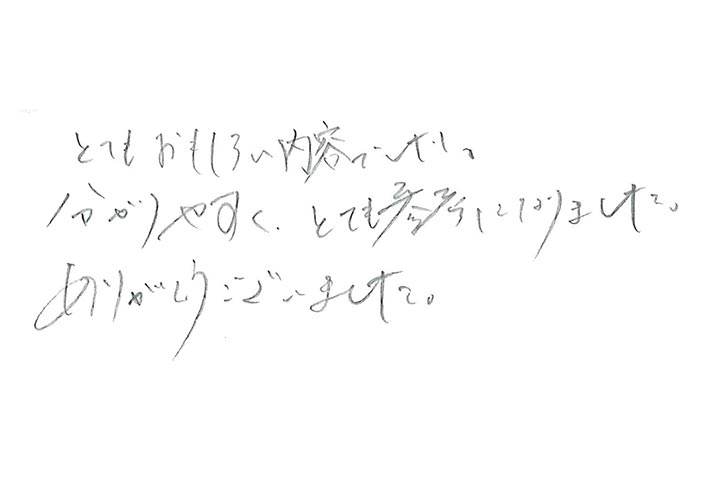 とてもおもしろい内容でした。
分かりやすく、とても参考になりました。
ありがとうございました。